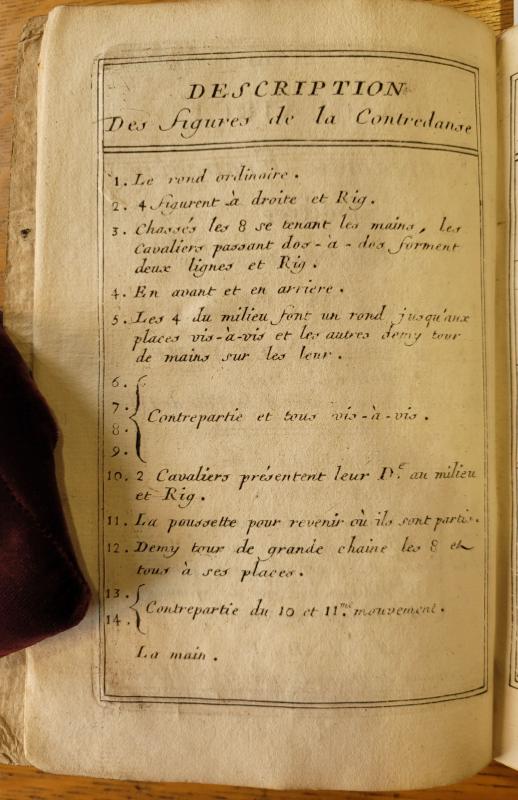 DESCRIPTION
Des figures de la Contredanse
1. Le rond ordinaire.
2. 4 figurent à droite et Rig.
3. Chassés les 8 se tenant les mains, les
Cavaliers passant dos-à-dos forment
deux lignes et Rig.
4. En avant et en arriere.
5. Les 4 du milieu font un rond jusqu'aux
places vis-à-vis et les autres demy tour
de mains sur les leur.
6.
7.
Contrepartie et tous vis-à-vis.
8.
9.
10. 2 Cavaliers présentent leur D.e au milieu
et Rig.
11. La poussette pour revenir où ils sont partis.
12. Demy tour de grande chaine les 8 et
tous à ses places.
13.
Contrepartie du 10 et 11.me mouvement.
14.
La main.